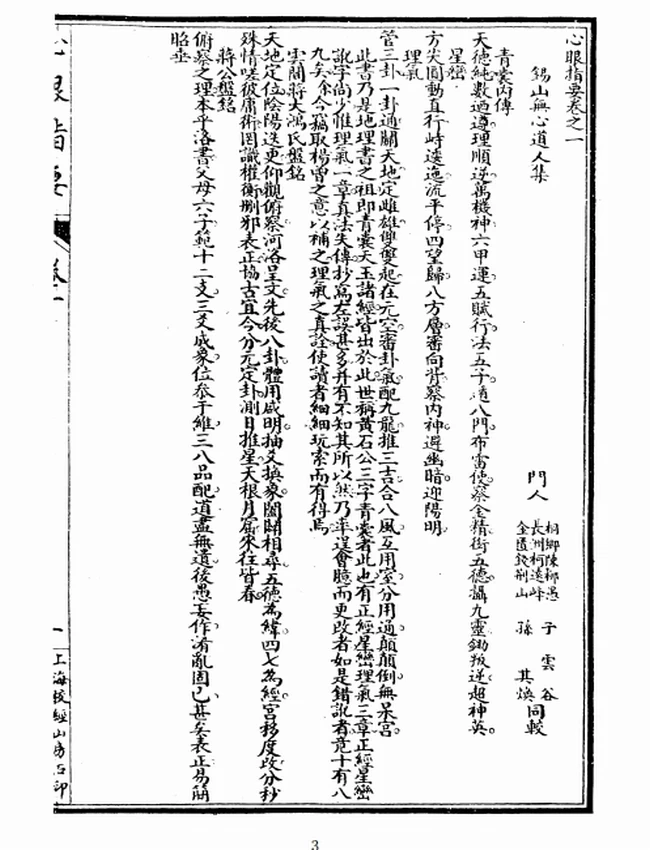 心眼指要卷之一
錫山無心道人集
門人
桐鄉陳柳愚
長洲柯遠峰
金匱錢荆山
子雲谷
孫其煥
同較
青囊內傳
天德純數迺遵理順逆萬機神六甲運五賦行法五子遁八門布雷使察金精衛五德攝九靈鋤叛逆超神英
星巒
方尖圓動直行峙逶迤流平停四望歸八方層審向背察內神避幽暗迎陽明
理氣
管三卦一卦通關天地定雌雄雙雙起在元空審卦氣配九龍推三吉合八風互用室分用通顛顛倒無呆宮
此書乃是地理書之祖即青囊天玉諸經皆出於此世稱黃石公三字青囊者此也有正經星巒理氣三章正經星巒
訛字尚少惟理氣一章真法失傳抄寫左誤甚多并有不知其所以然乃率逞會臆而更改者如是錯訛者竟十有八
九矣余今竊取楊曾之意以補之理氣之真詮使讀者細細玩索而有得焉
雲間蔣大鴻氏盤銘
天地定位陰陽迭更仰觀俯察河洛呈文先後八卦體用咸明抽爻換象闔闢相尋五德為緯四七為經宮移度改分秒
殊情嗟彼庸術罔識權衡刪邪表正協古宜今分元定卦測日推星天根月窟來往皆春
蔣公盤銘
俯察之理本乎洛書父母六子範十二支三爻成象位叅于維三八品配道盡無遺後愚妄作淆亂固已甚矣表正易簡
昭垂
心眼指要 卷一
一
上海校經山房石印
3